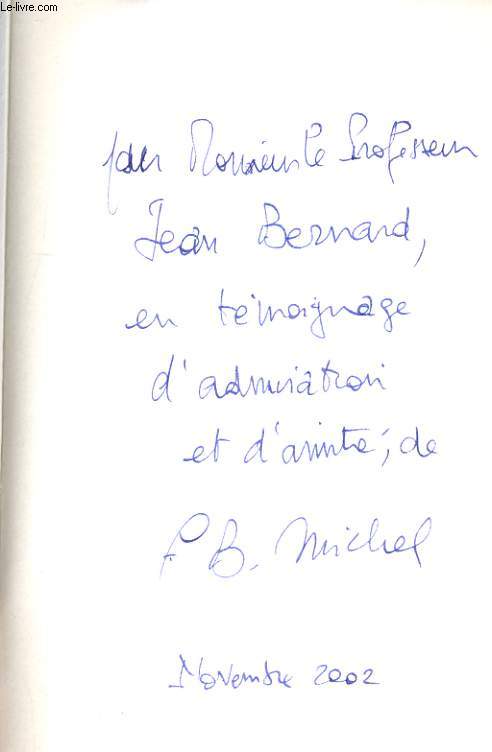 Le-livre.com
pour Monsieur le Professeur
Jean Bernard,
en témoignage
d'admiration
et d'amitié, de
F B. Michel
Novembre 2002